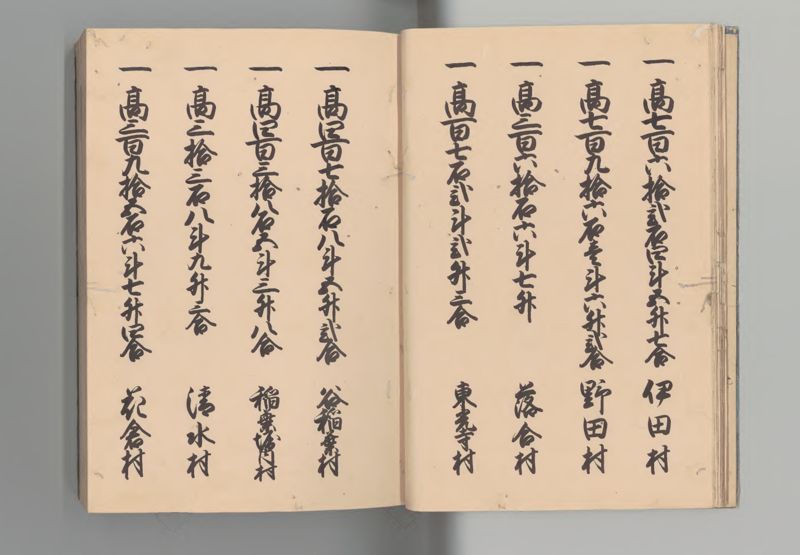 一高七百六拾弐石四斗五升七合 伊田村
一高七百九拾六石壱斗六升弐合 野田村
一高三百六拾石六斗七升 落合村
一高百七石弐斗弐升三合 東光寺村
一高四百七拾石八斗五升弐合 谷稲葉村
一高四百三拾八石五斗三升八合 稲葉堀之内村
一高三拾三石八斗九升三合 清水村
一高三百九拾五石六斗七升四合 花倉村